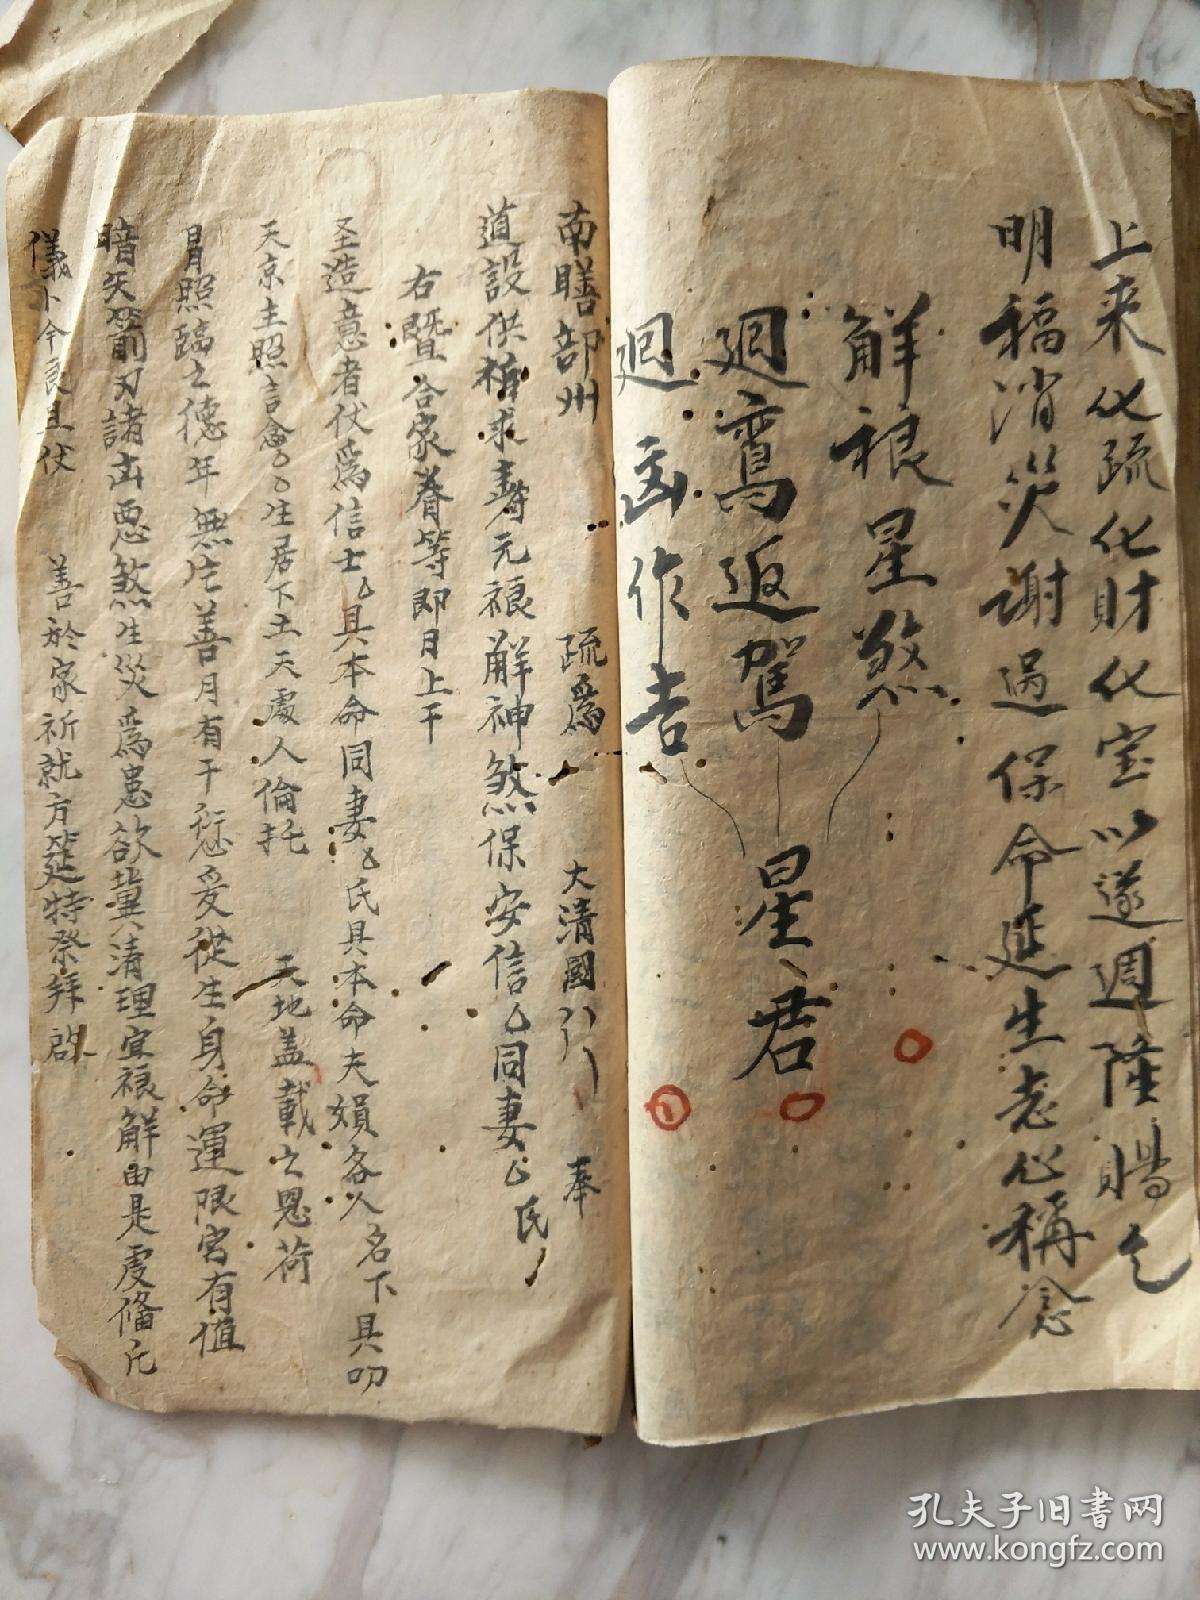 上来化疏化財化宝以遂週隆賜乞
明福消災謝過保命延生志心稱念
解禳星煞
迴鸞返駕 星君
迴凶作吉
南贍部州 疏為 大清國 奉
道設供禱求壽元禳解神煞保安信乙同妻乙氏
右暨合家眷等即日上干
圣造意者伏為信士乙具本命同妻乙氏具本命夫婦各人名下具叨
天京主照言念〇〇生居下土天處人倫托 天地盖載之恩荷
照臨之德年無片善月有千愆爰從生身命運限宮有值
暗矢箭刃諸凶惡煞生災為患欲冀清理宜禳解由是虔俻凡
儀卜今良旦伏 善於家祈就方筵特祭拜啟
孔夫子旧書网
www.kongfz.com